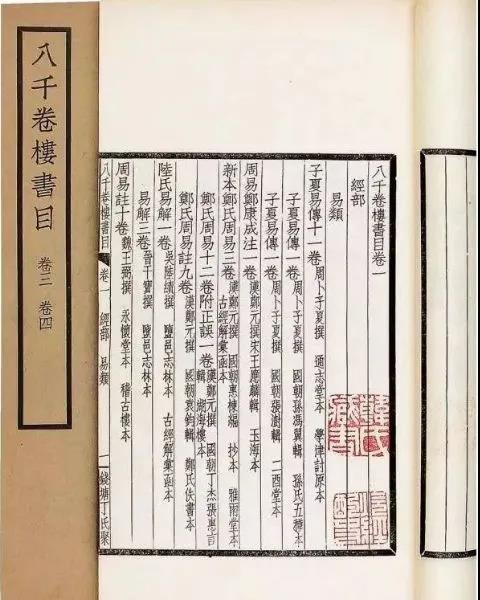 八千卷樓書目
卷三 卷四
八千卷樓書目卷一
經部
易類
子夏易傳十一卷 周卜子夏撰 通志堂本 學津討原本
子夏易傳一卷 周卜子夏撰 國朝孫馮翼輯 孫氏五種本
子夏易傳一卷 周卜子夏撰 國朝張澍輯 二酉堂本
周易鄭康成注一卷 漢鄭元撰宋王應麟輯 玉海本
新本鄭氏周易三卷 漢鄭元撰 國朝惠棟編 抄本 雅雨堂本
古經解彙函本
鄭氏周易十二卷附正誤一卷 漢鄭元撰 國朝丁杰張惠言
輯 湖海樓本
鄭氏周易註九卷 漢鄭元撰 國朝袁鈞輯 鄭氏佚書本
陸氏易解一卷 吳陸績撰 鹽邑志林本 古經解彙函本
易解三卷 晉干寶撰 鹽邑志林本
周易註十卷 魏王弼撰 永懷堂本 稽古樓本
八千卷樓書目 卷一 經部 易類 一 錢塘丁氏聚